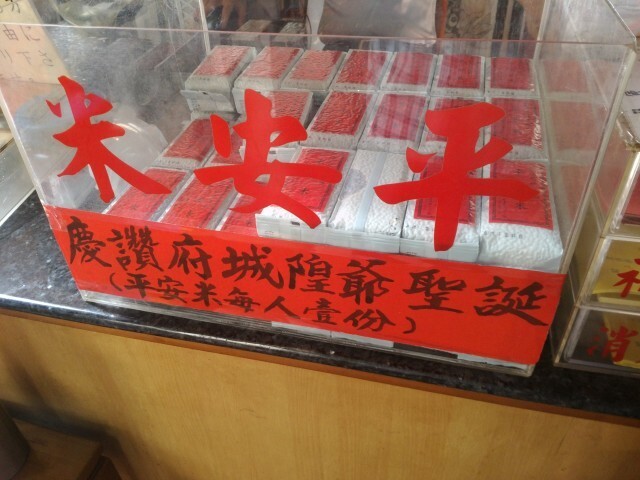 平安米
慶讚府城隍爺聖誕
(平安米每人壹份)
消